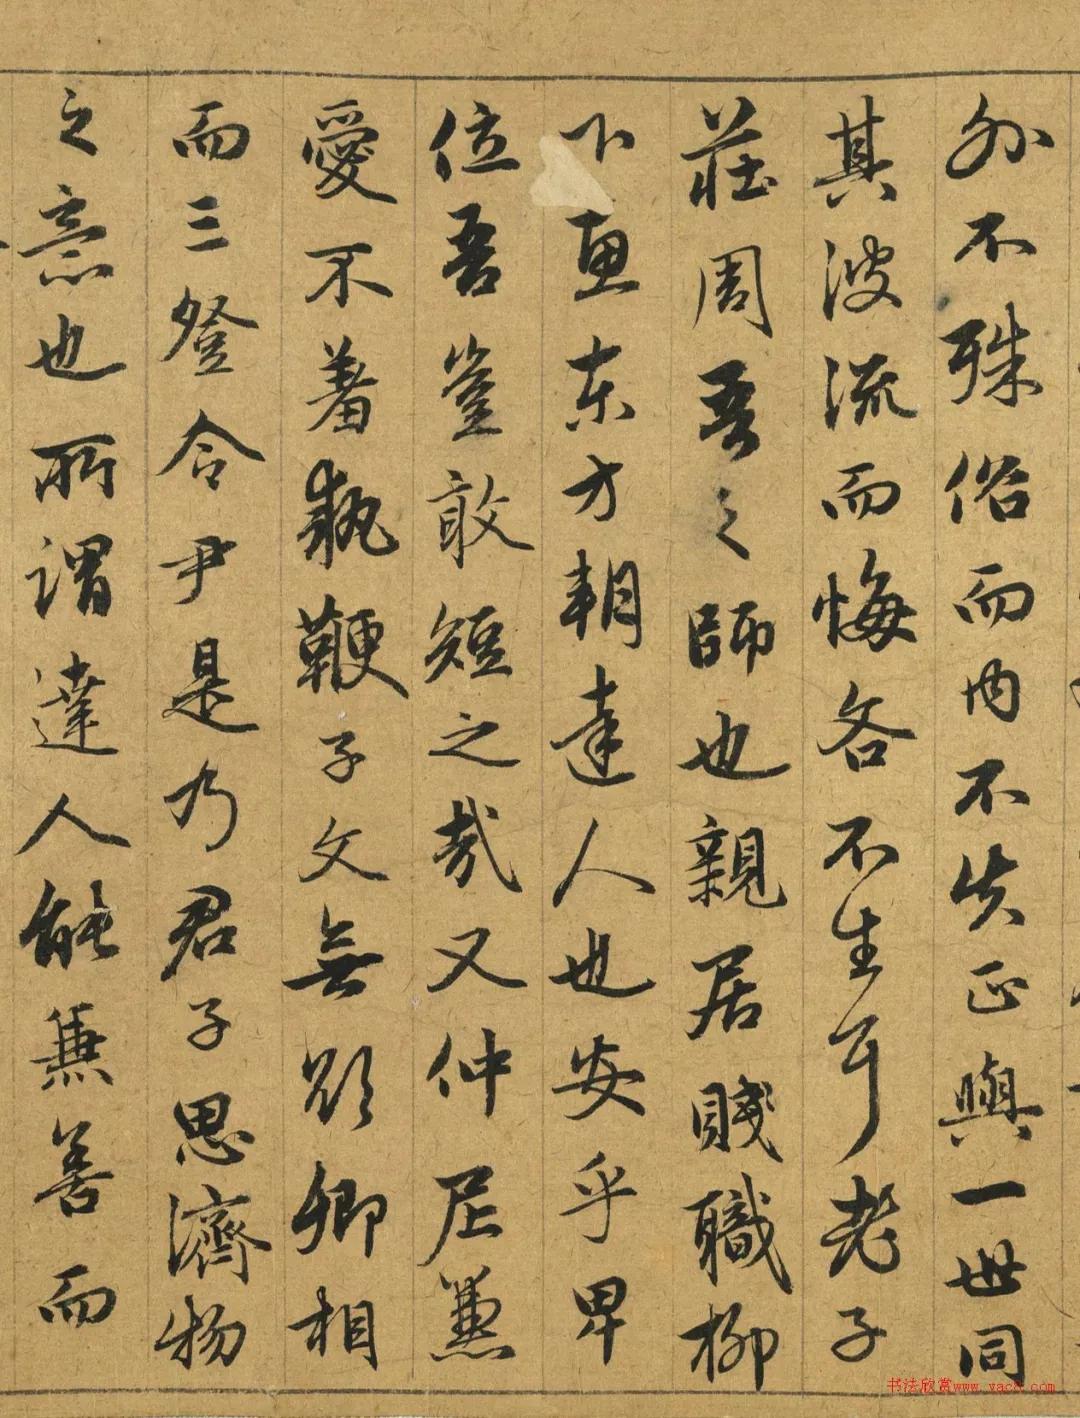 外不殊俗而内不失正與一世同
其波流而悔吝不生耳老子
莊周吾之師也親居賤職柳
下惠東方朔達人也安乎卑
位吾豈敢短之哉又仲尼兼
愛不羞執鞭子文無欲卿相
而三登令尹是乃君子思濟物
之意也所謂達人能兼善而
书法欣赏www.yac8.com